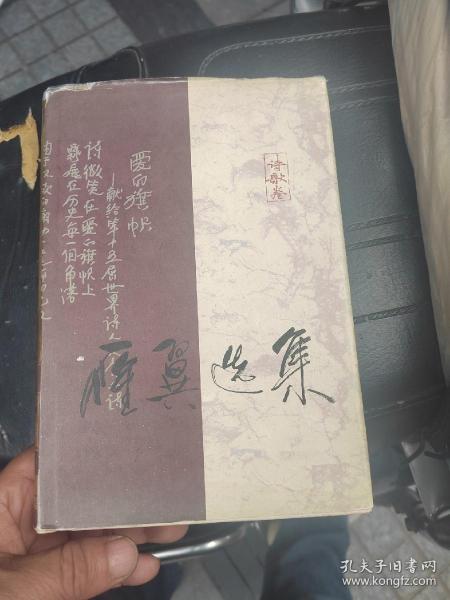 诗歌卷
雁翼选集
爱的旗帜
—献给第十五届世界诗人大会
诗微笑在爱的旗帜上
飘展在历史每一个角落
孔夫子旧书网
www.kongfz.com